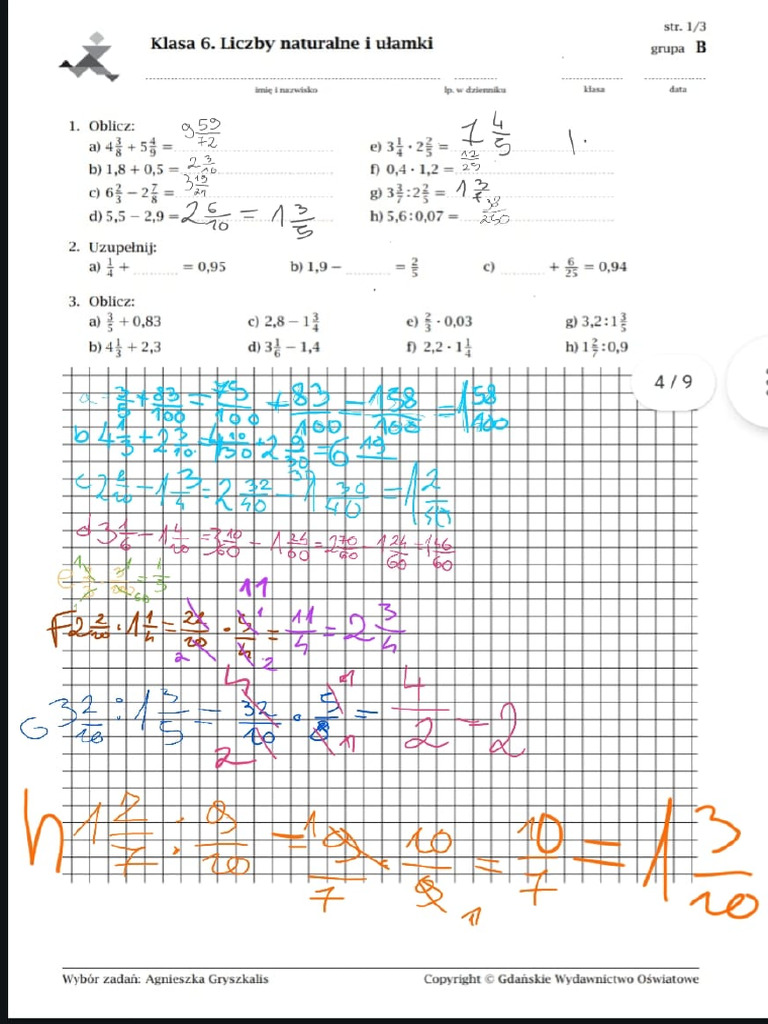 str. 1/3
Klasa 6. Liczby naturalne i ułamki
grupa B
imię i nazwisko lp. w dzienniku klasa data
1. Oblicz:
a) 4 3/8 + 5 4/9 = 9 59/72 e) 3 1/4 · 2 2/5 = 7 4/5
b) 1,8 + 0,5 = 2 3/10 f) 0,4 · 1,2 = 12/25
c) 6 2/3 − 2 7/8 = 3 19/24 g) 3 3/7 : 2 2/5 = 1 3/7
d) 5,5 − 2,9 = 2 6/10 = 1 3/5 h) 5,6 : 0,07 =
2. Uzupełnij:
a) 1/4 + ........ = 0,95 b) 1,9 − ........ = 2/5 c) ........ + 6/25 = 0,94
3. Oblicz:
a) 3/5 + 0,83 c) 2,8 − 1 3/4 e) 2/3 · 0,03 g) 3,2 : 1 3/5
b) 4 1/3 + 2,3 d) 3 1/6 − 1,4 f) 2,2 · 1 1/4 h) 1 2/7 : 0,9
4 / 9
a 3/5 + 83/100 = 75/100 + 83/100 = 158/100 = 1 58/100
b 4 1/3 + 2 3/10 = 4 10/30 + 2 9/30 = 6 19
c 2 8/10 − 1 3/4 = 2 32/40 − 1 30/40 = 1 2/40
d 3 1/6 − 1 4/10 = 3 10/60 − 1 24/60 = 2 70/60 − 1 24/60 = 1 46/60
F 2 2/10 · 1 1/4 = 22/10 · 5/4 = 11/4 = 2 3/4
G 3 2/10 : 1 3/5 = 32/10 · 5/8 = 4/2 = 2
h 1 2/7 : 9/10 = 9/7 · 10/9 = 10/7 = 1 3/10
Wybór zadań: Agnieszka Gryszkalis Copyright © Gdańskie Wydawnictwo Oświatowe